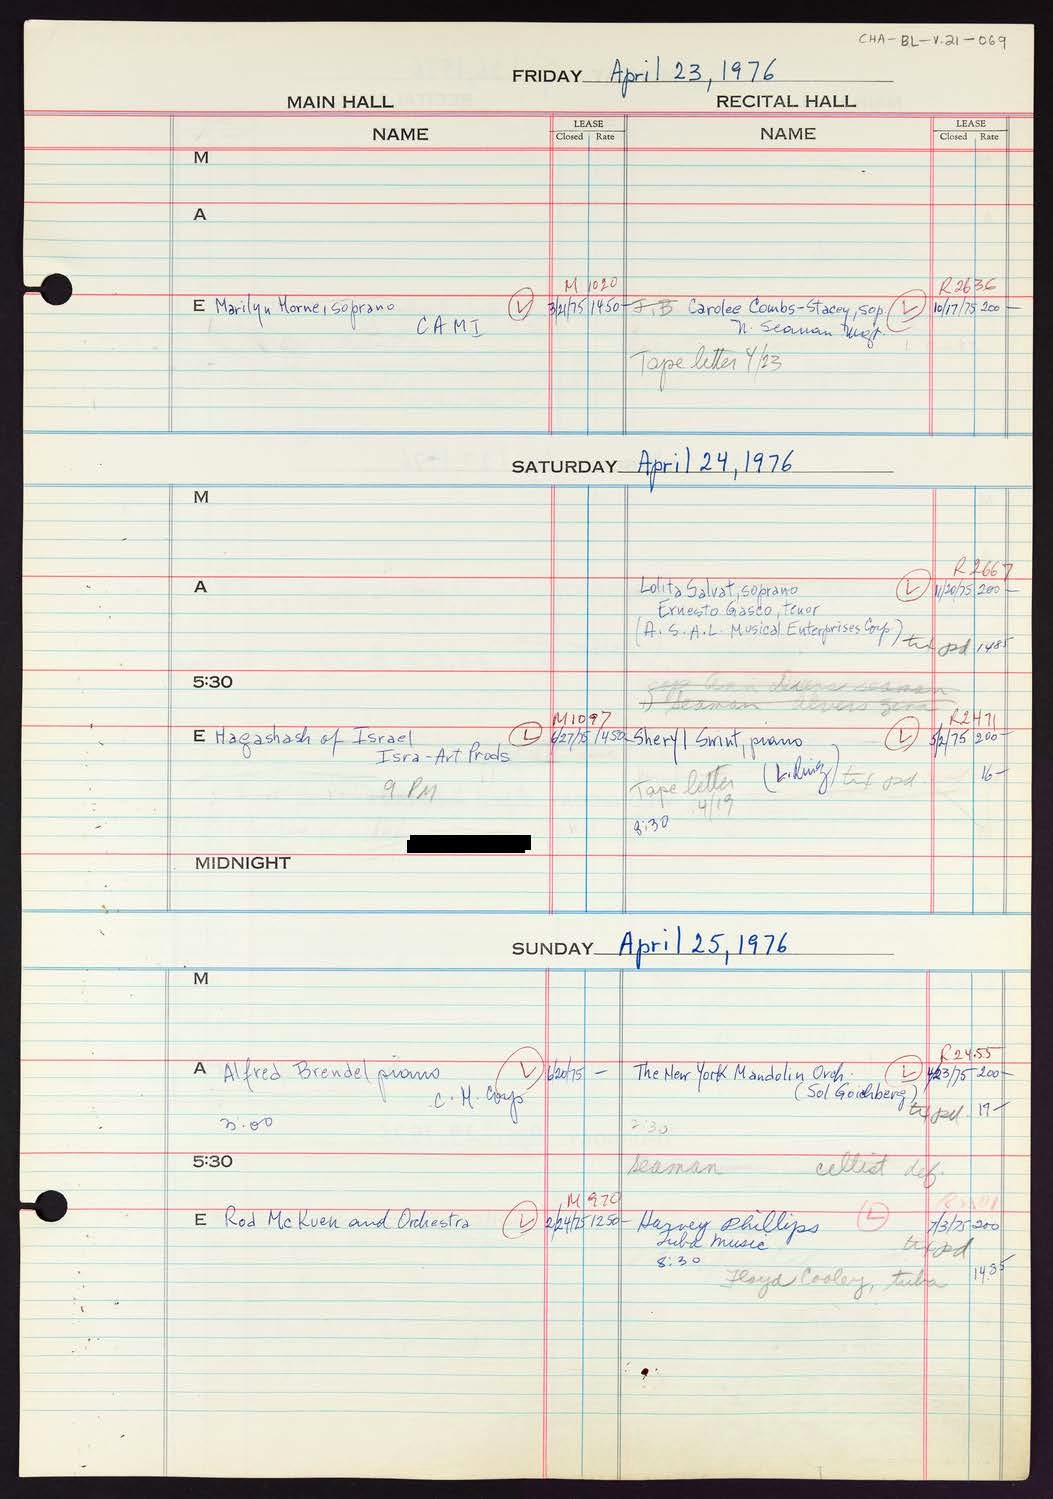 CHA-BL-V.21-069
FRIDAY April 23, 1976
MAIN HALL RECITAL HALL
NAME LEASE Closed Rate NAME LEASE Closed Rate
M
A
M 1020 R2636
E Marilyn Horne, soprano L 3/21/75 1450- J.B Carolee Combs-Stacey, sop. L 10/17/75 200-
CAMI N. Seaman Mgt.
Tape letter 4/23
SATURDAY April 24, 1976
M
R2667
A Lolita Salvat, soprano L 11/20/75 200-
Ernesto Gasco, tenor
(A.S.A.L. Musical Enterprises Corp.) tix pd 1485
5:30
Seaman
M1097 R2471
E Hagashash of Israel L 6/27/75 1450- Sheryl Smint, piano L 5/2/75 200-
Isra-Art Prods
9 PM Tape letter tix pd. 16-
4/19
8:30
MIDNIGHT
SUNDAY April 25, 1976
M
R2455
A Alfred Brendel piano L 6/20/75 - The New York Mandolin Orch. L 4/23/75 200-
C.H. Corp (Sol Goichberg)
3:00 2:30 tix pd. 17-
5:30 Seaman cellist def.
M 970
E Rod McKuen and Orchestra L 2/24/75 1250- Harvey Phillips L 7/3/75 200
Tuba Music tix pd
8:30
Floyd Cooley, tuba 14.85